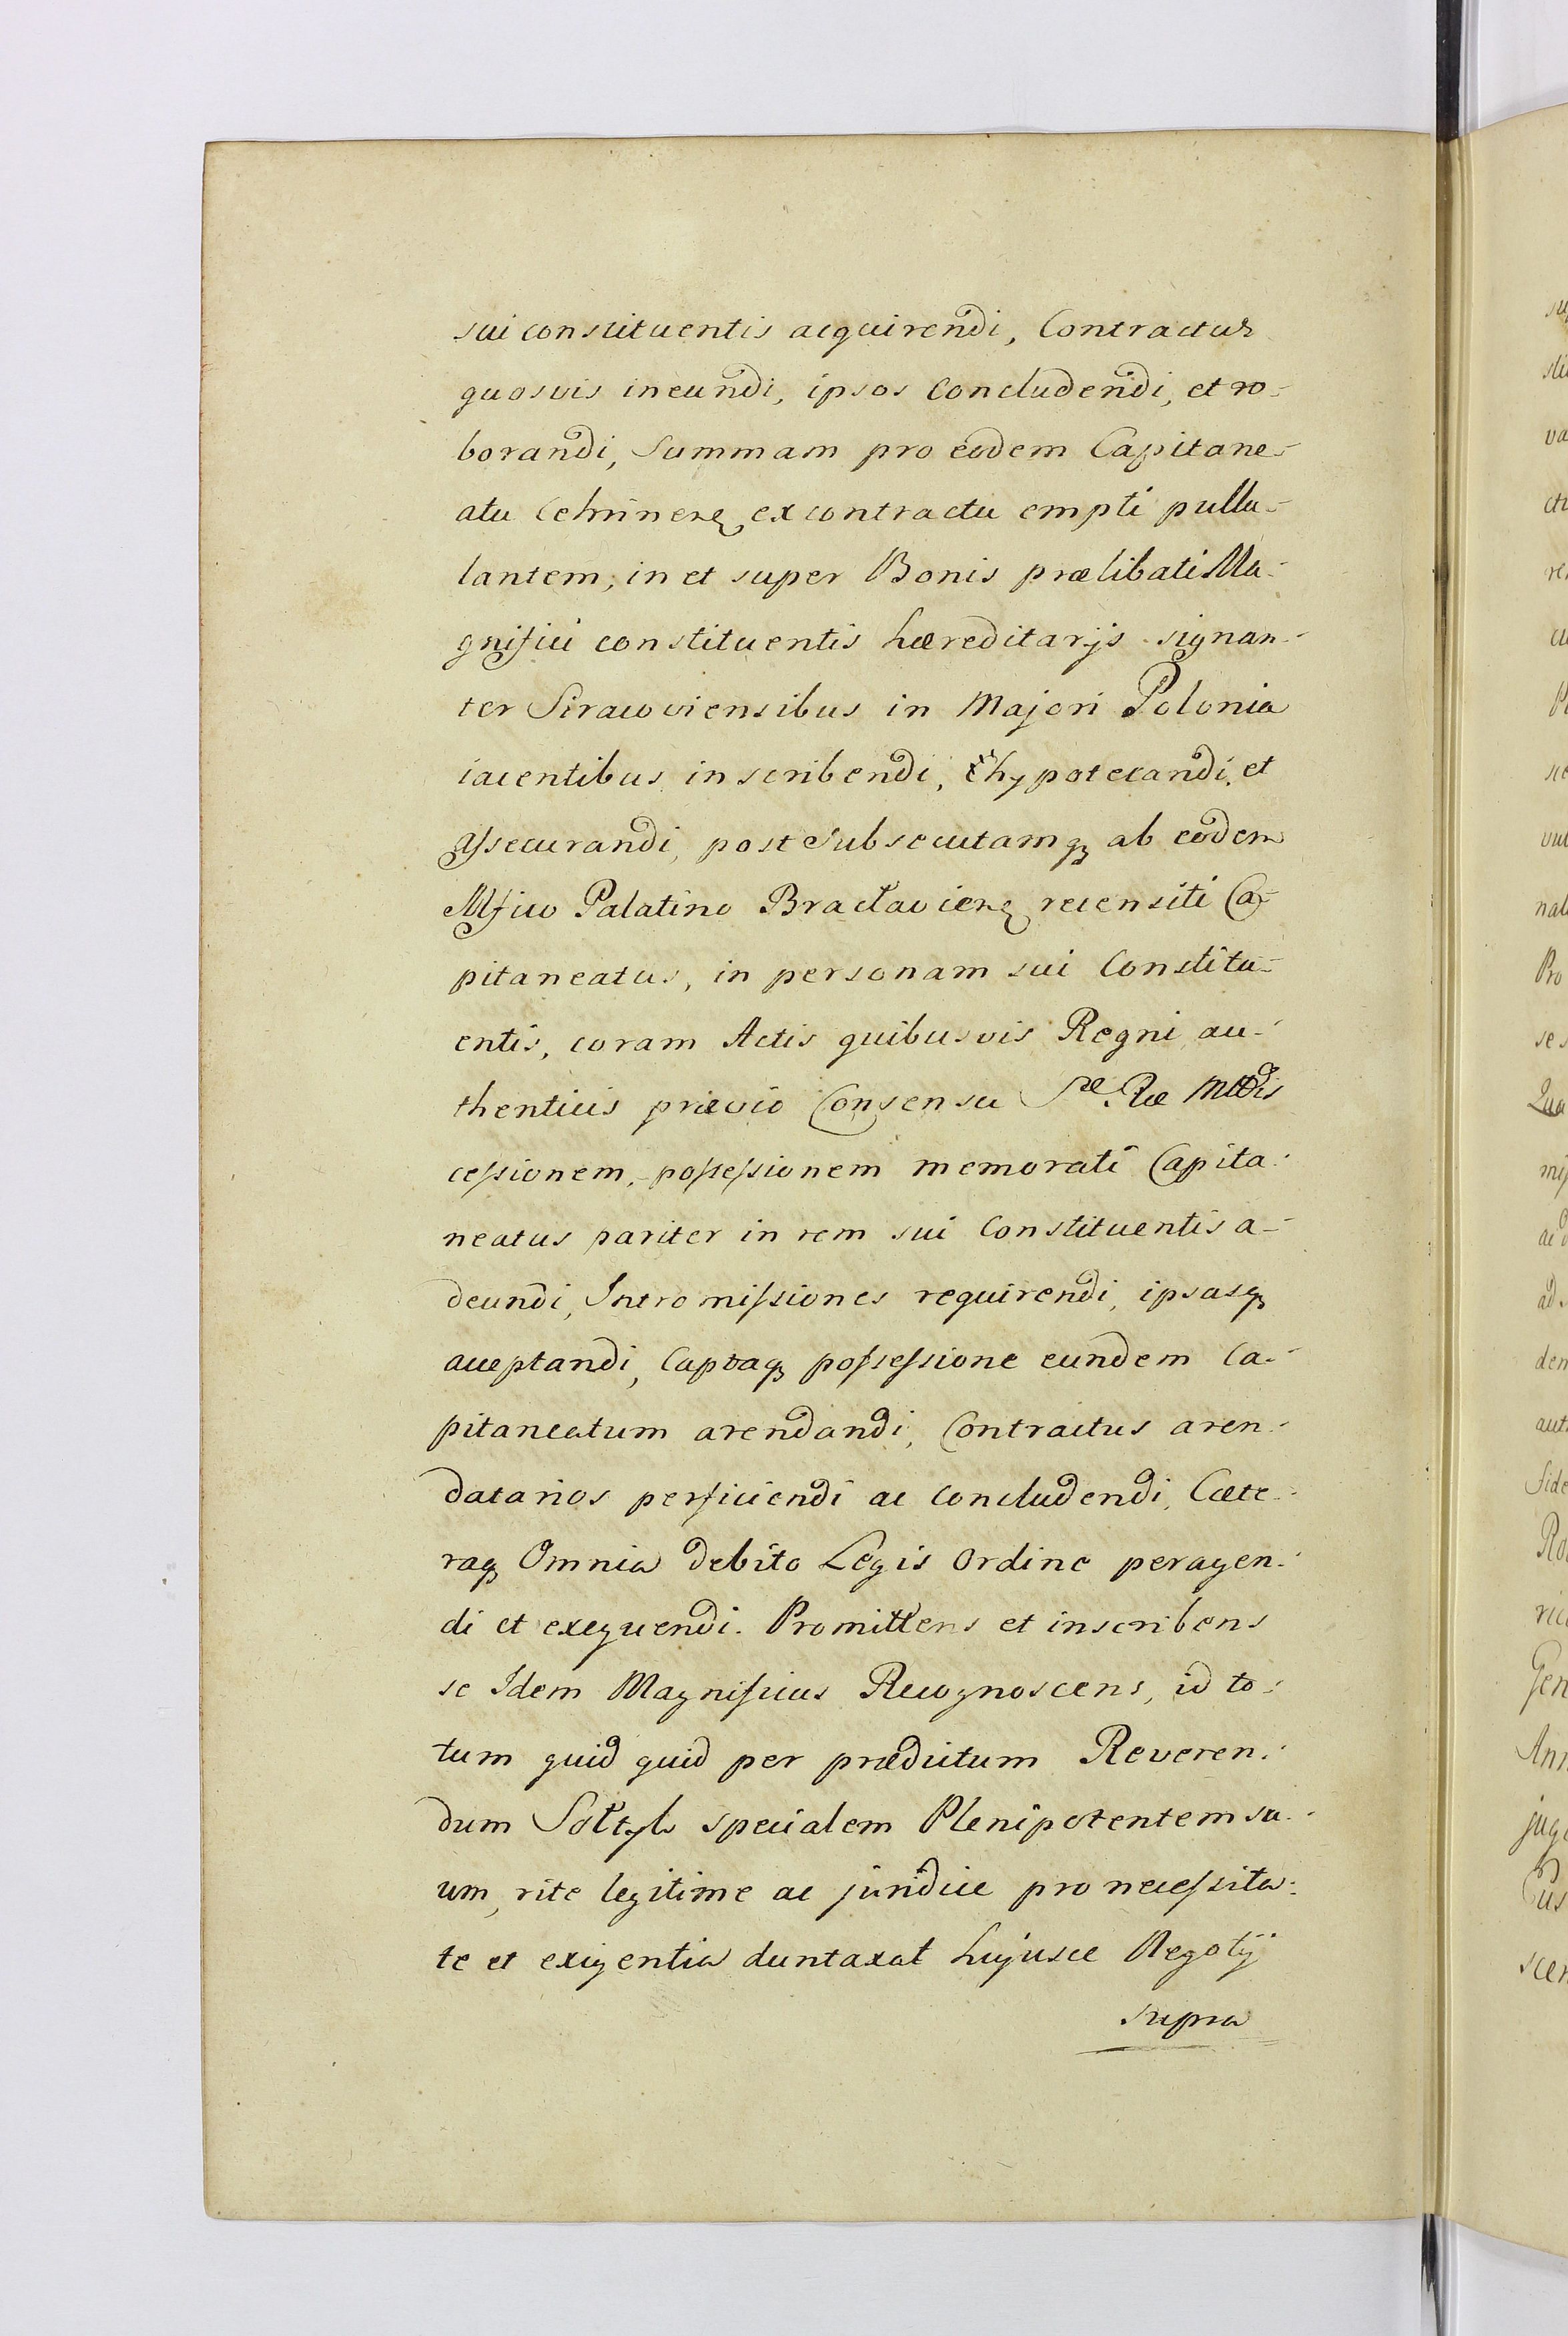 sui constituentis acquirendi, Contractus
quosvis ineundi, ipsos Concludendi, et ro-
borandi, Summam pro eodem Capitane-
atu Cehrinenꝫ ex contractu empti pullu-
lantem, in et super Bonis prælibati Ma-
gnifici constituentis hæreditarijs signan-
ter Siracoviensibus in Majori Polonia
iacentibus inscribendi, hypotecandi, et
assecurandi, post subsecutamqꝫ ab eodem
Mfico Palatino Bractavienꝫ recensiti Ca-
pitaneatus, in personam sui Constitu-
entis, coram Actis quibusvis Regni au-
thenticis prævio Consensu Sæ. Ræ Mttis
cessionem, possessionem memorati Capita-
neatus pariter in rem sui Constituentis a-
deundi, Intromissiones requirendi, ipsasqꝫ
acceptandi, Captaqꝫ possessione eundem Ca-
pitaneatum arendandi, Contractus aren-
datarios perficiendi ac concludendi, Cæte-
raqꝫ Omnia debito Legis Ordine peragen-
di et exequendi. Promittens et inscribens
se Idem Magnificus Recognoscens, id to-
tum quid quid per prædictum Reveren-
dum Sołtyk specialem Plenipotentem su-
um, rite legitime ac juridice pro necessita-
te et exigentia duntaxat hujusce Negotij
supra